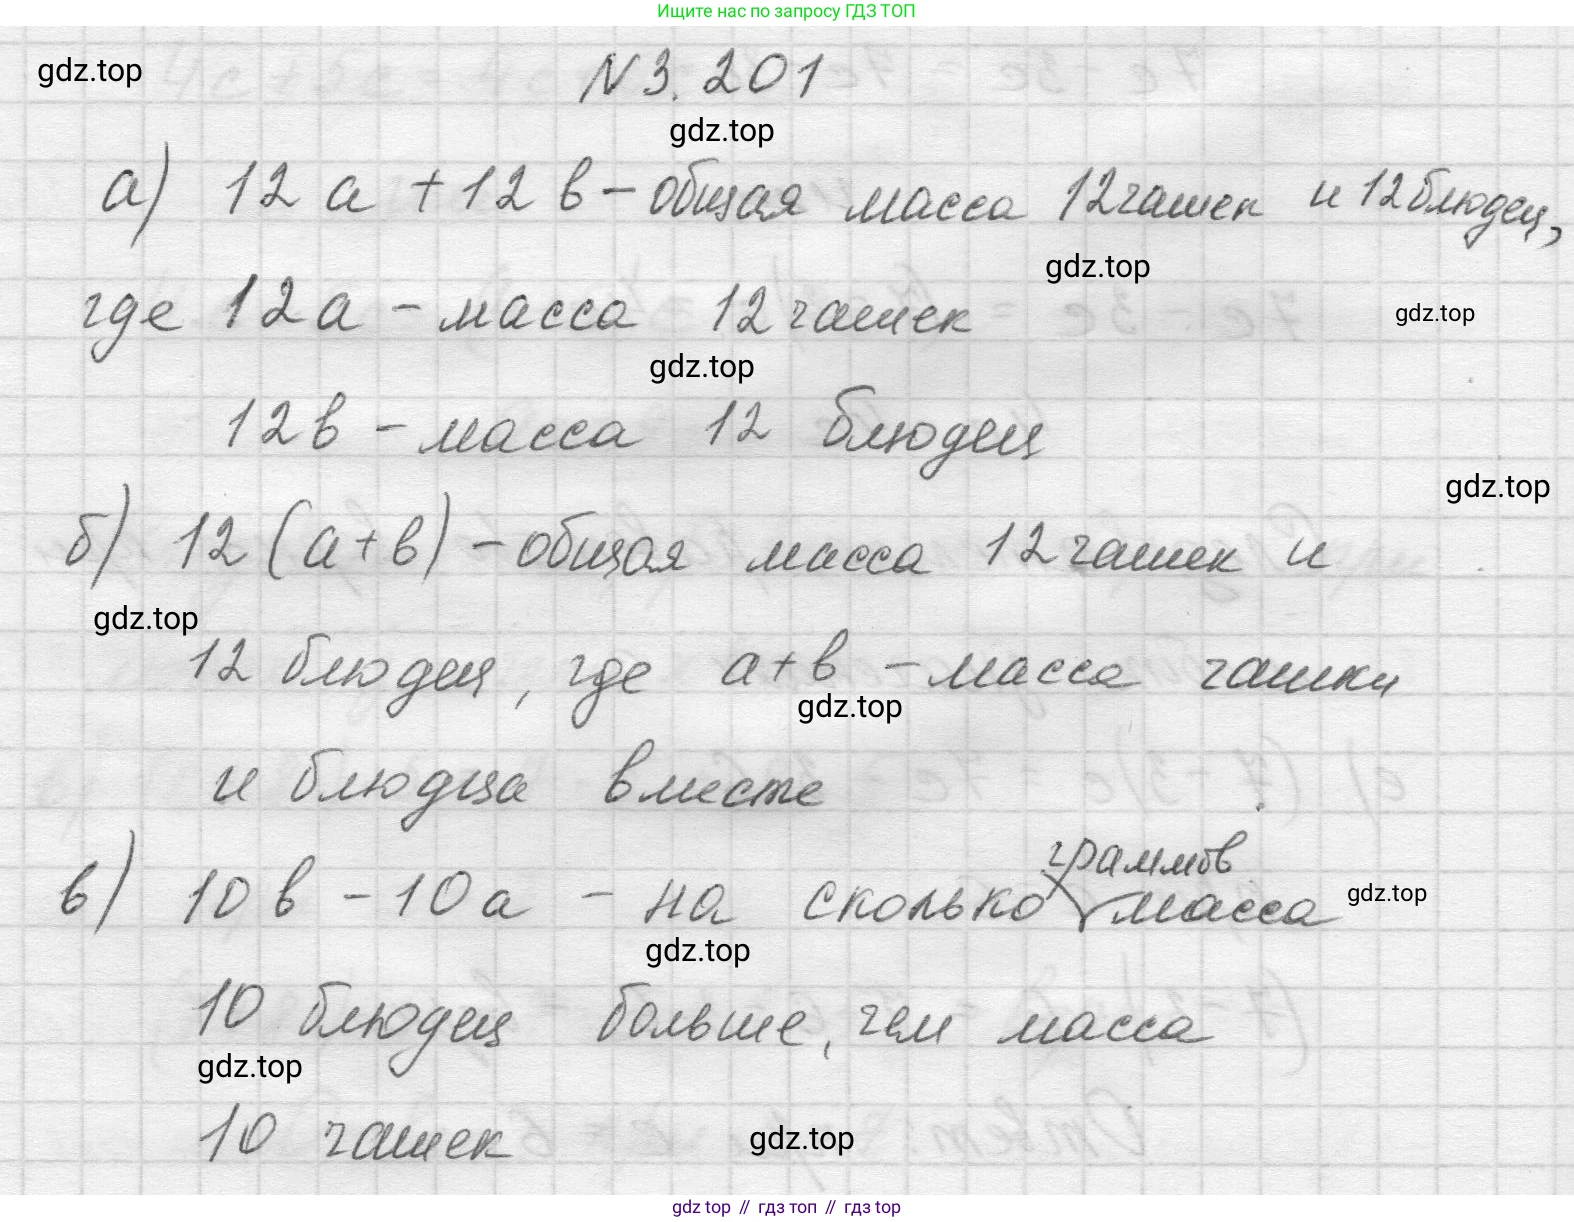 Ищите нас по запросу ГДЗ ТОП
gdz.top
N 3. 201
gdz.top
а) 12 а + 12 в – общая масса 12 чашек и 12 блюдец,
gdz.top
где 12а – масса 12 чашек
gdz.top
gdz.top
12в – масса 12 блюдец
gdz.top
б) 12 (а+в) – общая масса 12 чашек и
gdz.top
12 блюдец, где а+в – масса чашки
gdz.top
и блюдца вместе
граммов
в) 10 в – 10 а – на сколько масса
gdz.top
gdz.top
10 блюдец больше, чем масса
gdz.top
10 чашек
gdz.top
gdz top // гдз топ // гдз top